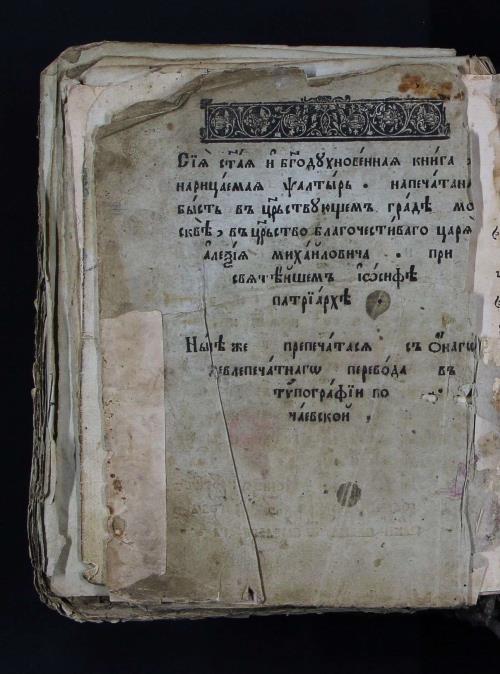 Сїѧ ст҃аѧ и҆ бг҃одꙋхнове́ннаѧ кни́га ,
нарица́емаѧ ѱалты́рь . напеча́тана
бы́сть въ црⷭ҇твꙋющемъ гра́дѣ мо
сквѣ̀, въ црⷭ҇тво благочести́ваго царѧ̀
а҆леѯі́ѧ миха́йловича . при
свѧтѣ́йшемъ і҆ѡ́сифѣ
патрїа́рхѣ
Ны́нѣ же препеча́тасѧ съ о҆́нагѡ
перево́да въ
тѷпогра́фїи по
ча́евской ,